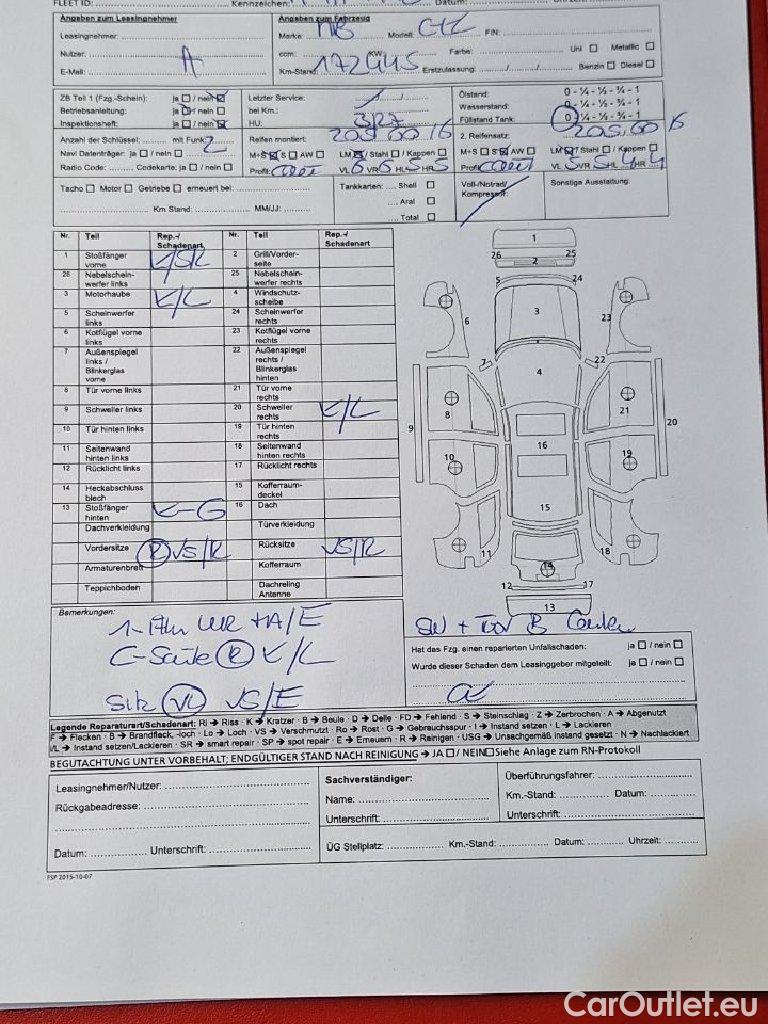 FLEET ID: Kennzeichen: Datum:
Angaben zum Leasingnehmer Angaben zum Fahrzeug
Leasingnehmer: Marke: MB Modell: FIN:
Nutzer: A ccm: KW: Farbe: Uni Metallic
E-Mail: Km-Stand: 172445 Erstzulassung: Benzin Diesel
ZB Teil 1 (Fzg.-Schein): ja / nein Letzter Service: Ölstand: 0 - ¼ - ½ - ¾ - 1
Betriebsanleitung: ja / nein bei Km.: Wasserstand: 0 - ¼ - ½ - ¾ - 1
Inspektionsheft: ja / nein HU: 3/27 Füllstand Tank: 0 - ¼ - ½ - ¾ - 1
Anzahl der Schlüssel: mit Funk: 2 Reifen montiert: 205, 60 16 2. Reifensatz: 205, 60 16
Navi Datenträger: ja / nein M+S S AW LM / Stahl / Kappen M+S S AW LM / Stahl / Kappen
Radio Code: Codekarte: ja / nein Profil: VL 6 VR 6 HL 5 HR 5 Profil: VL 5 VR 5 HL 4 HR 4
Tacho Motor Getriebe erneuert bei: Tankkarten: Shell Voll-/Notrad/ Sonstige Ausstattung:
Kompressor:
Aral
Km Stand: MM/JJ: Total
Nr. Teil Rep.-/ Schadenart Nr. Teil Rep.-/ Schadenart
1 Stoßfänger vorne K/SR 2 Grill/Vorderseite
26 Nebelscheinwerfer links 25 Nebelscheinwerfer rechts
3 Motorhaube K/L 4 Windschutzscheibe
5 Scheinwerfer links 24 Scheinwerfer rechts
6 Kotflügel vorne links 23 Kotflügel vorne rechts
7 Außenspiegel links / Blinkerglas vorne 22 Außenspiegel rechts / Blinkerglas hinten
8 Tür vorne links 21 Tür vorne rechts
9 Schweller links 20 Schweller rechts K/L
10 Tür hinten links 19 Tür hinten rechts
11 Seitenwand hinten links 18 Seitenwand hinten rechts
12 Rücklicht links 17 Rücklicht rechts
14 Heckabschluss blech 15 Kofferraumdeckel
13 Stoßfänger hinten K-G 16 Dach
Dachverkleidung Türverkleidung
Vordersitze R VS/R Rücksitze VS/R
Armaturenbrett Kofferraum
Teppichboden Dachreling Antenne
1
26 25
2
5 24
3
6 23
7 22
4
8 21
9 20
16
10 19
15
11 18
14
12 17
13
Bemerkungen:
C-Säule R K/L
Sitz VL VS/E
Hat das Fzg. einen reparierten Unfallschaden: ja / nein
Wurde dieser Schaden dem Leasinggeber mitgeteilt: ja / nein
Legende Reparaturart/Schadenart: Ri → Riss · K → Kratzer · B → Beule · D → Delle · FD → Fehlend · S → Steinschlag · Z → Zerbrochen · A → Abgenutzt
F → Flecken · B → Brandfleck, -loch · Lo → Loch · VS → Verschmutzt · Ro → Rost · G → Gebrauchsspur · I → Instand setzen · L → Lackieren
I/L → Instand setzen/Lackieren · SR → smart repair · SP → spot repair · E → Erneuern · R → Reinigen · USG → Unsachgemäß instand gesetzt · N → Nachlackiert
BEGUTACHTUNG UNTER VORBEHALT; ENDGÜLTIGER STAND NACH REINIGUNG → JA / NEIN Siehe Anlage zum RN-Protokoll
Leasingnehmer/Nutzer: Sachverständiger: Überführungsfahrer:
Rückgabeadresse: Name: Km.-Stand: Datum:
Unterschrift: Unterschrift:
Datum: Unterschrift: ÜG Stellplatz: Km.-Stand: Datum: Uhrzeit:
FSP 2015-10-07
CarOutlet.eu